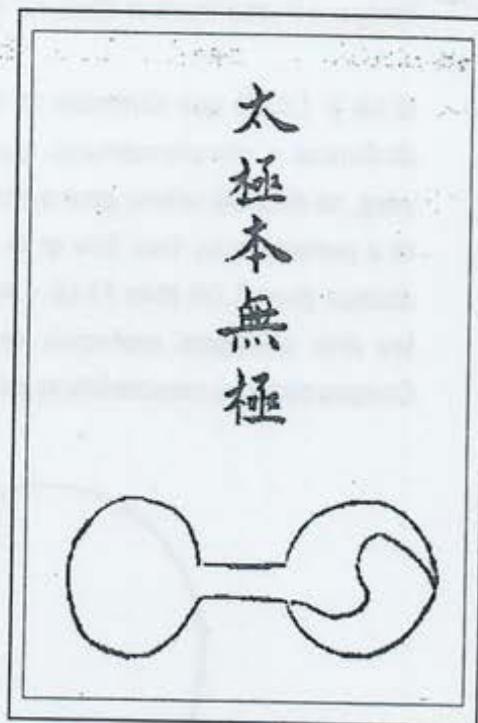 太極本無極